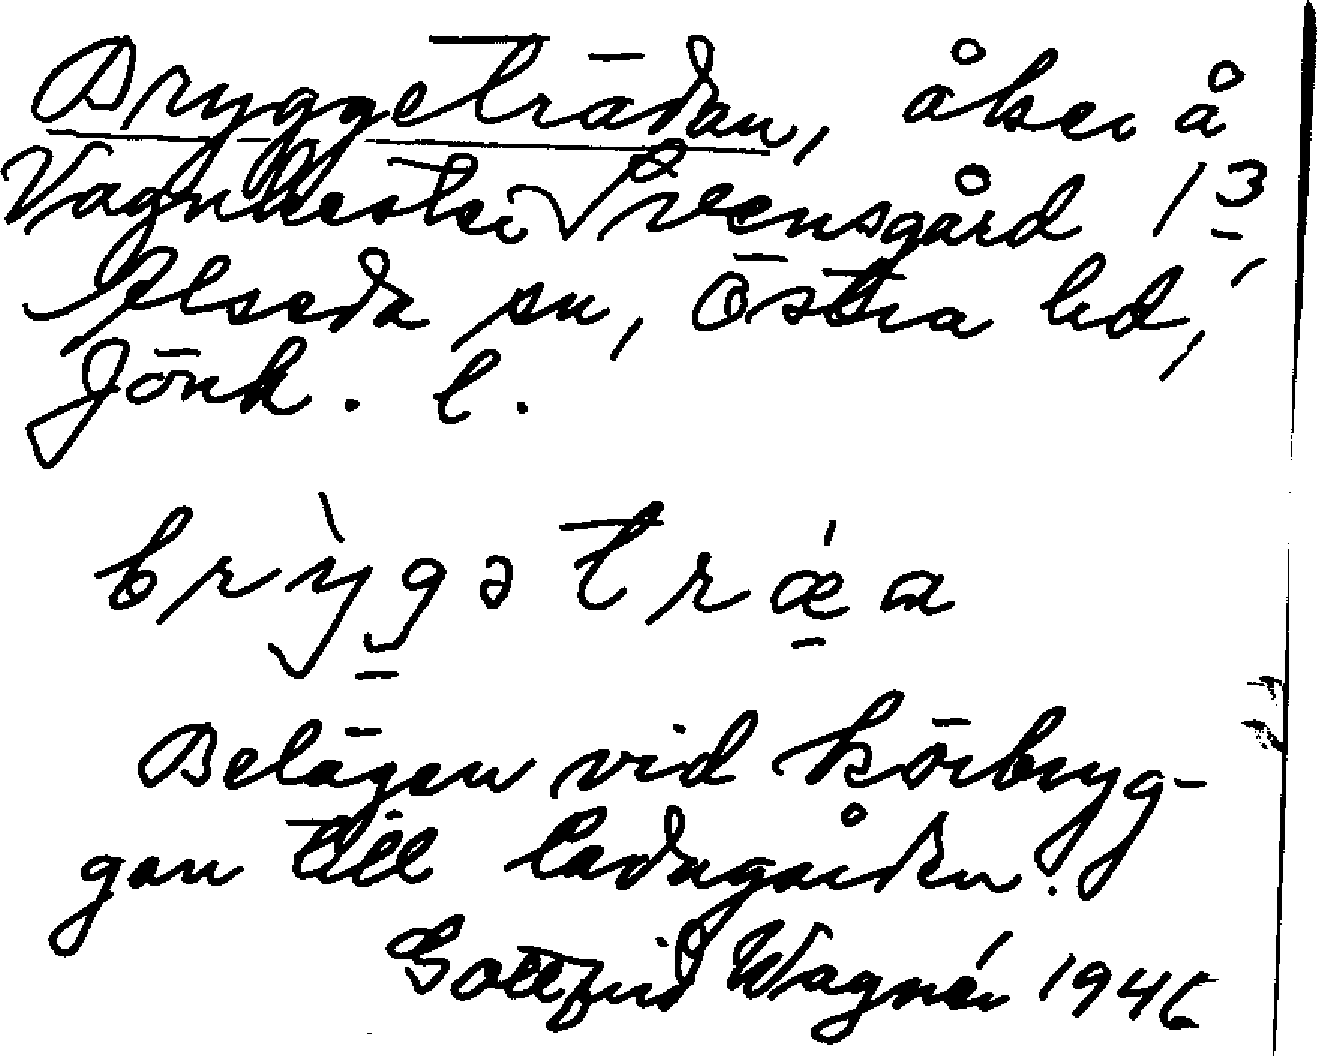 Bryggeträdan, åker å
Vagnhester Svensgård 1 3,
Alseda sn, Östra hd,
Jönk. l.
brỳgətrǽa
Belägen vid körbryg-
gan till ladugården.
Gottfrid Wagnér 1946